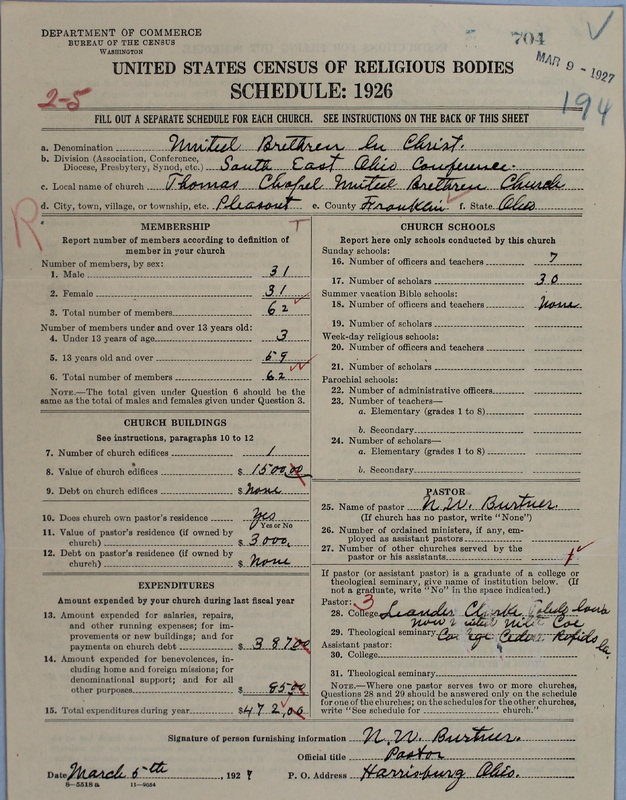 DEPARTMENT OF COMMERCE
BUREAU OF THE CENSUS
WASHINGTON
704
MAR 9 - 1927
194
UNITED STATES CENSUS OF RELIGIOUS BODIES
SCHEDULE: 1926
2-5
FILL OUT A SEPARATE SCHEDULE FOR EACH CHURCH. SEE INSTRUCTIONS ON THE BACK OF THIS SHEET
a. Denomination United Brethren In Christ.
b. Division (Association, Conference, Diocese, Presbytery, Synod, etc.) South East Ohio Conference.
c. Local name of church Thomas Chapel United Brethren Church
d. City, town, village, or township, etc. Pleasant e. County Franklin f. State Ohio
R
MEMBERSHIP T
Report number of members according to definition of
member in your church
Number of members, by sex:
1. Male 31
2. Female 31
3. Total number of members 62
Number of members under and over 13 years old:
4. Under 13 years of age 3
5. 13 years old and over 59
6. Total number of members 62
NOTE.—The total given under Question 6 should be
same as the total of males and females given under Question 3.
CHURCH BUILDINGS
See instructions, paragraphs 10 to 12
7. Number of church edifices 1
8. Value of church edifices $ 1500.00
9. Debt on church edifices $ None
10. Does church own pastor's residence Yes
Yes or No
11. Value of pastor's residence (if owned by
church) $ 3000.
12. Debt on pastor's residence (if owned by
church) $ None
EXPENDITURES
Amount expended by your church during last fiscal year
13. Amount expended for salaries, repairs,
and other running expenses; for im-
provements or new buildings; and for
payments on church debt $ 387.00
14. Amount expended for benevolences, in-
cluding home and foreign missions; for
denominational support; and for all
other purposes $ 85.00
15. Total expenditures during year $ 472.00
CHURCH SCHOOLS
Report here only schools conducted by this church
Sunday schools:
16. Number of officers and teachers 7
17. Number of scholars 30
Summer vacation Bible schools:
18. Number of officers and teachers None
19. Number of scholars
Week-day religious schools:
20. Number of officers and teachers
21. Number of scholars
Parochial schools:
22. Number of administrative officers
23. Number of teachers—
a. Elementary (grades 1 to 8)
b. Secondary
24. Number of scholars—
a. Elementary (grades 1 to 8)
b. Secondary
PASTOR
25. Name of pastor N. W. Burtner.
(If church has no pastor, write "None")
26. Number of ordained ministers, if any, em-
ployed as assistant pastors
27. Number of other churches served by the
pastor or his assistants 1
If pastor (or assistant pastor) is a graduate of a college or
theological seminary, give name of institution below. (If
not a graduate, write "No" in the space indicated.)
Pastor: 3
28. College Leander Clarke Toledo Iowa
now Coe
29. Theological seminary College Cedar Rapids Ia.
Assistant pastor:
30. College
31. Theological seminary
NOTE.—Where one pastor serves two or more churches,
Questions 28 and 29 should be answered only on the schedule
for one of the churches; on the schedules for the other churches,
write "See schedule for church."
Signature of person furnishing information N. W. Burtner.
Official title Pastor
Date March 5th, 1927 P. O. Address Harrisburg Ohio.
8-5518a 11-9084